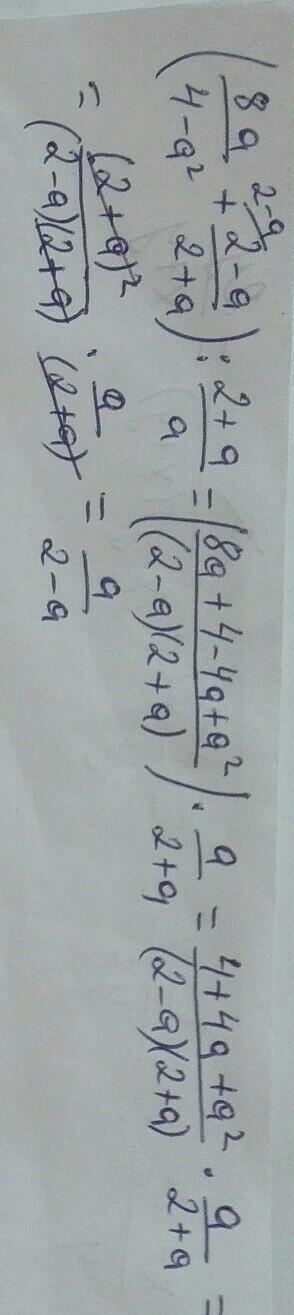 (8a/(4-a²) + (2-a)/(2+a) ^(2-a)) : (2+a)/a = ((8a+4-4a+a²)/((2-a)(2+a))) · a/(2+a) = (4+4a+a²)/((2-a)(2+a)) · a/(2+a) =
= (2+a)²/((2-a)(2+a)) · a/(2+a) = a/(2-a)